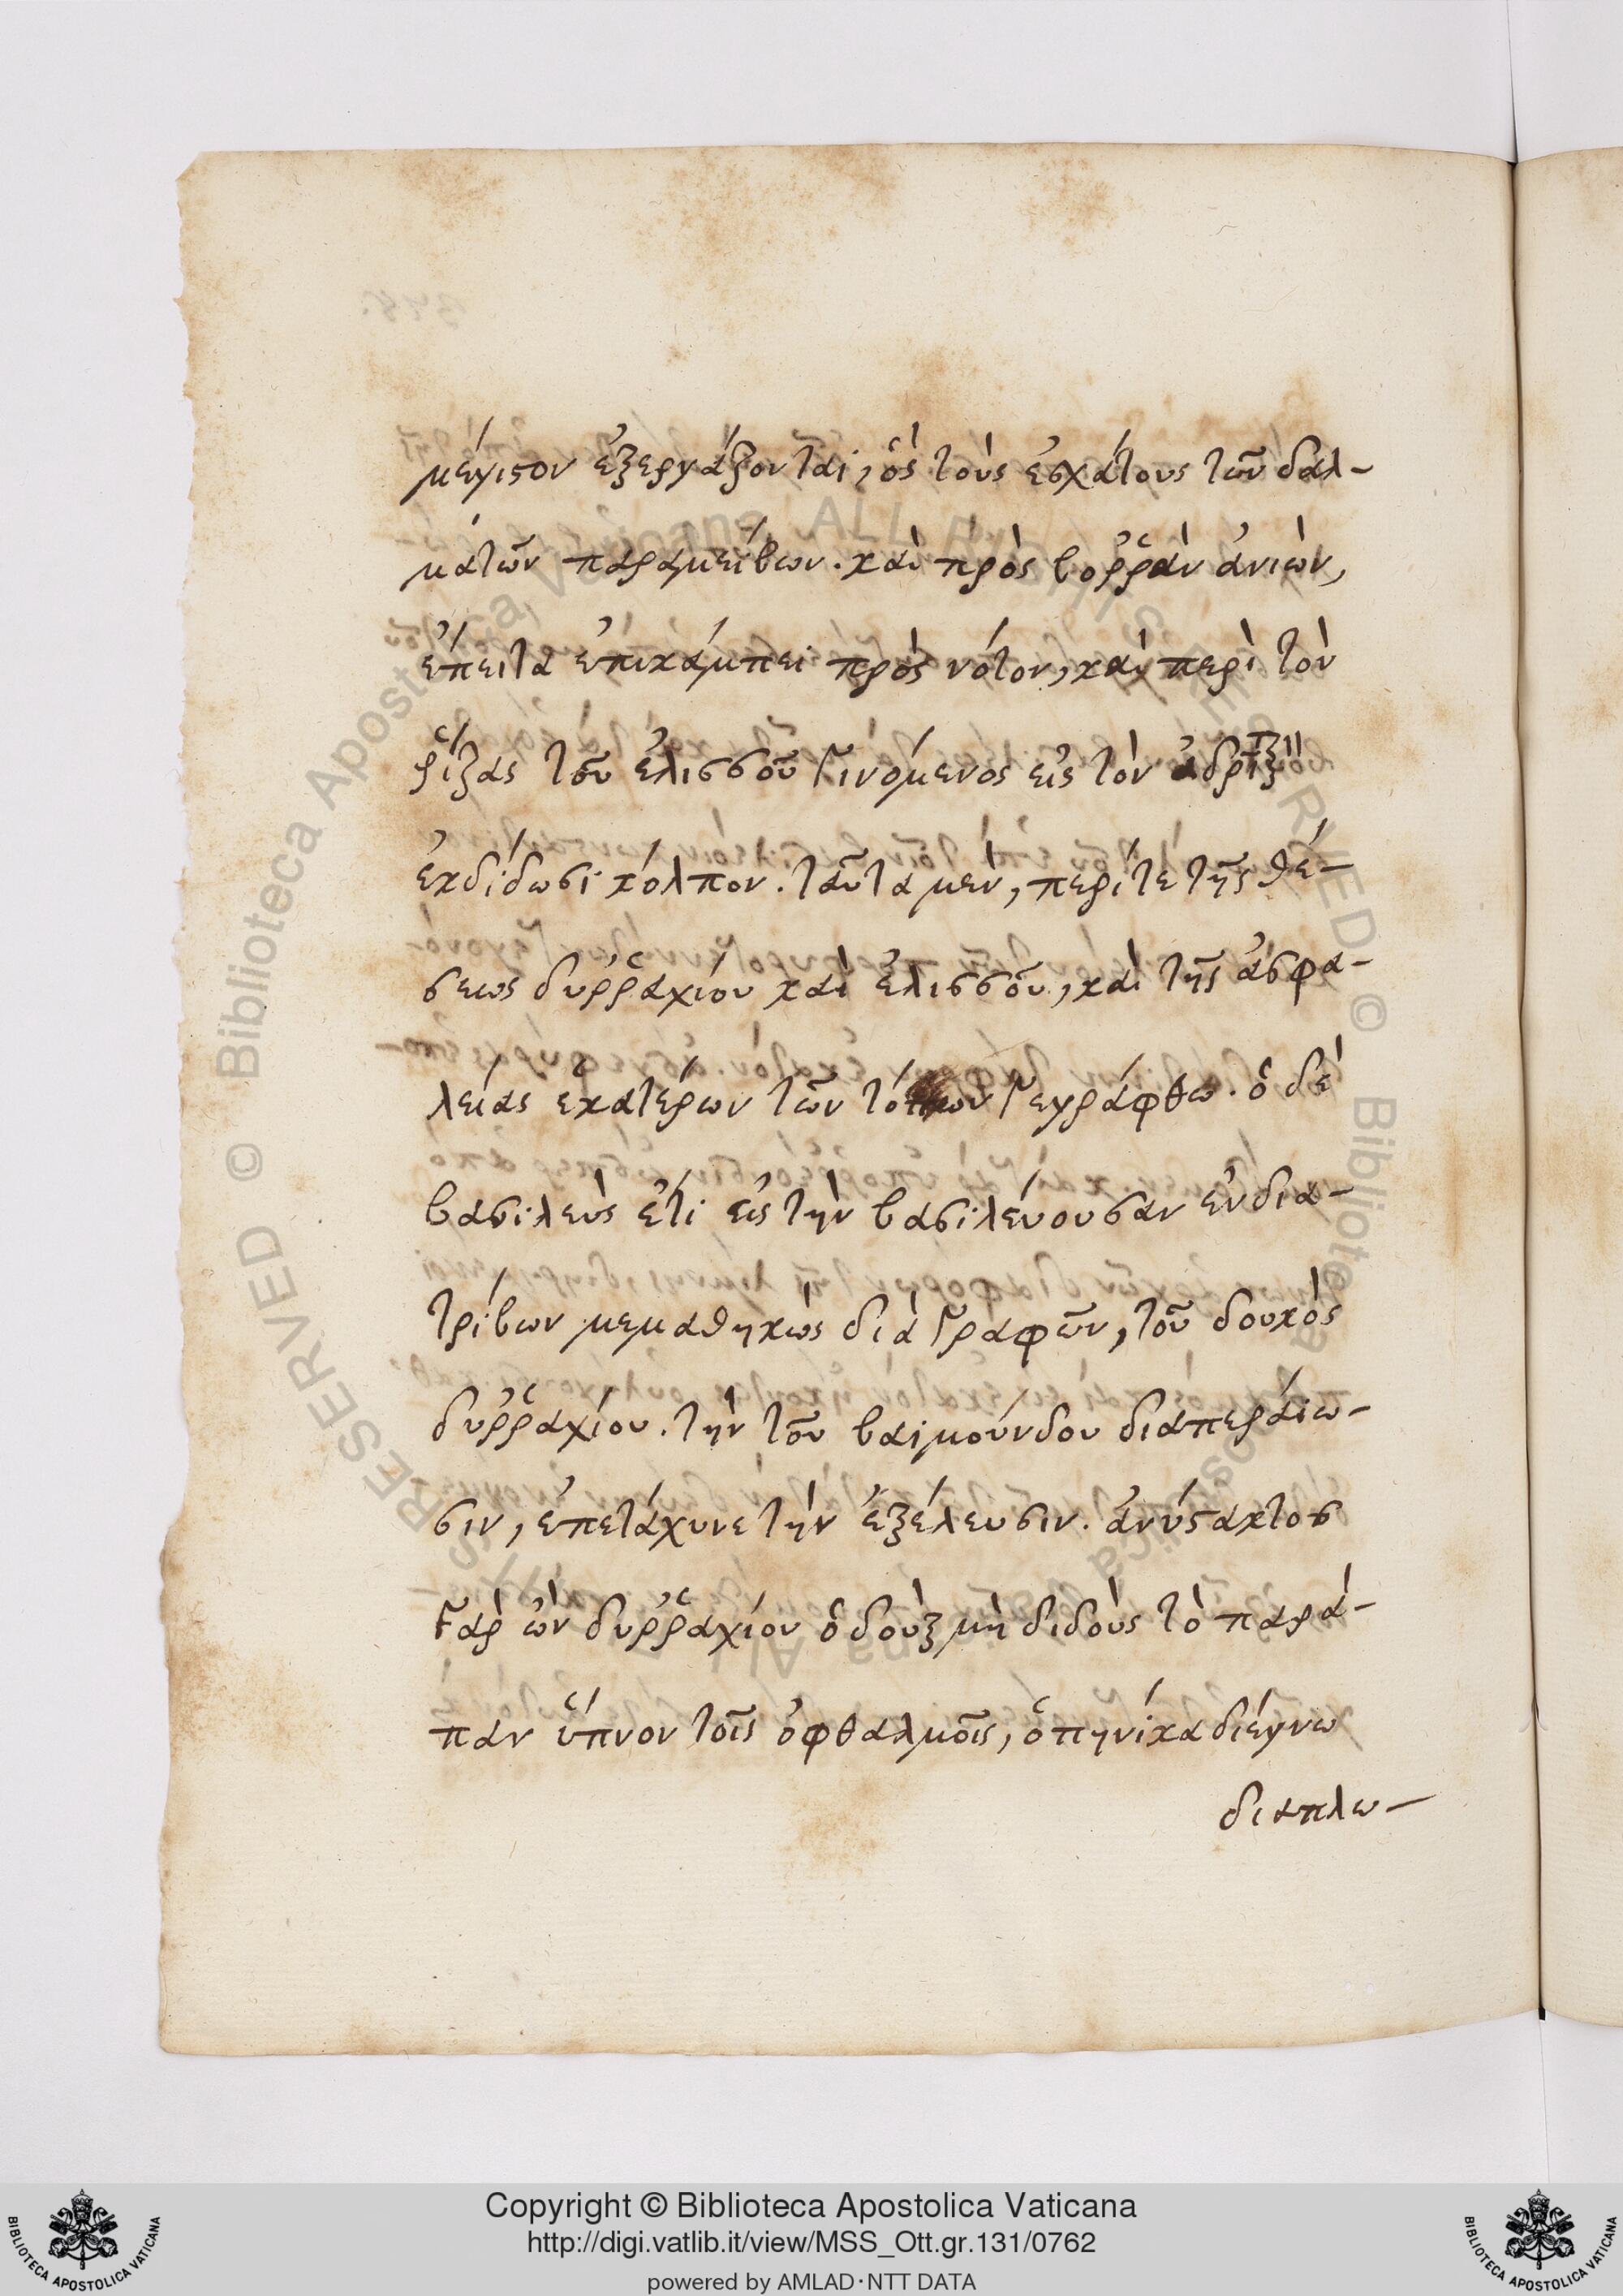 μέγιστον ἐξεργάζονται, ὃς τοὺς ἐσχάτους τῶν δαλ-
ματῶν παραμείβων. καὶ πρὸς βοῤῥὰν ἀνιὼν,
ἔπειτα ἐπικάμπει πρὸς νότον, καὶ περὶ τὸν
ῥίζας τοῦ ἐλισσοῦ γινόμενος εἰς τὸν
ἐκδίδωσι κόλπον. ταῦτα μὲν, περί τε τῆς θέ-
σεως δυῤῥαχίου καὶ ἐλισσοῦ, καὶ τῆς ἀσφα-
λείας ἑκατέρων τῶν γεγράφθω. ὁ δὲ
βασιλεὺς ἔτι εἰς τὴν βασιλεύουσαν ἐνδια-
τρίβων μεμαθηκὼς διὰ γραφῶν, τοῦ δουκὸς
δυῤῥαχίου. τὴν τοῦ βαϊμούνδου διαπεραίω-
σιν, ἐπετάχυνε τὴν ἐξέλευσιν. ἀνύστακτος
γὰρ ὢν δυῤῥαχίου ὁ δοὺξ μὴ διδοὺς τὸ παρά-
παν ὕπνον τοῖς ὀφθαλμοῖς, ὁπηνίκα διέγνω
διαπλω-
Copyright © Biblioteca Apostolica Vaticana
http://digi.vatlib.it/view/MSS_Ott.gr.131/0762
powered by AMLAD·NTT DATA
BIBLIOTECA APOSTOLICA VATICANA
BIBLIOTECA APOSTOLICA VATICANA